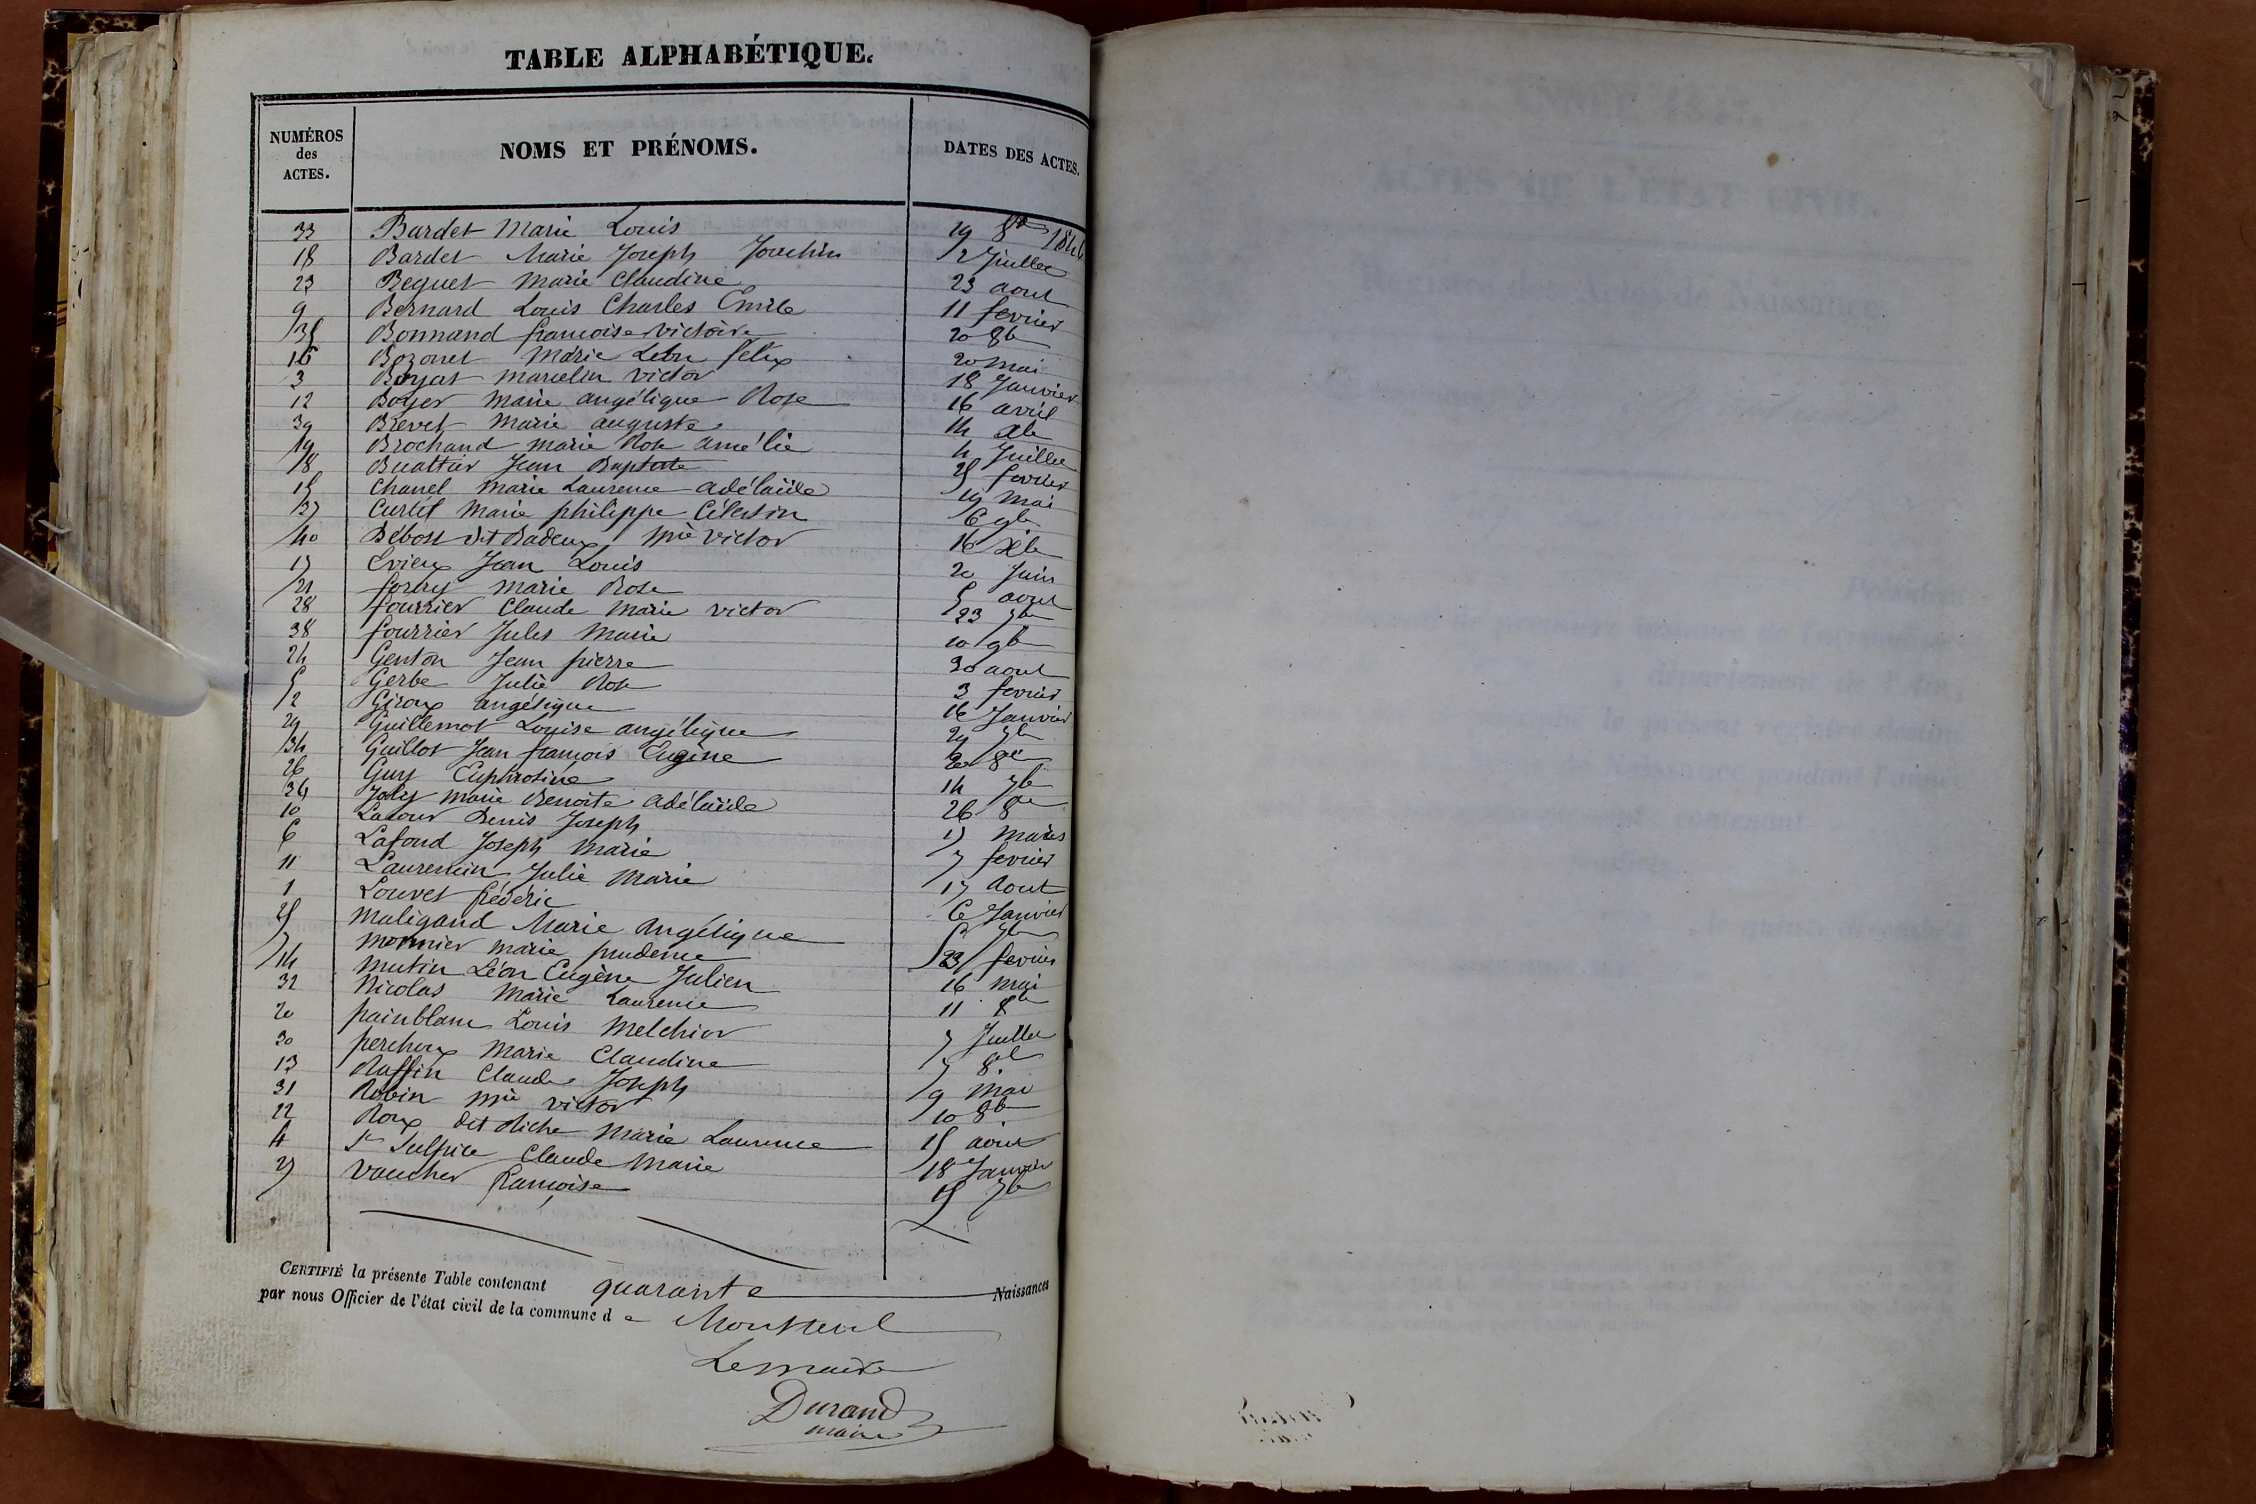 TABLE ALPHABÉTIQUE.
NUMÉROS des ACTES. NOMS ET PRÉNOMS. DATES DES ACTES.
33 Bardet Marie Louis 19 8bre
18 Bardet Marie Joseph Joachim 2 Juillet
23 Beguet Marie Claudine 23 aout
9 Bernard Louis Charles Emile 11 fevrier
35 Bonnand francoise victoire 20 8b
16 Bozonet Marie Léon félix 20 mai
3 Boyat Marcelin victor 18 Janvier
12 Boyer Marie angélique Rose 16 avril
39 Brevet Marie auguste 14 xb
19 Brochand Marie Rose amélie 4 Juillet
8 Buattier Jean Baptiste 25 fevrier
15 Chanel Marie Laurence adélaïde 19 Mai
37 Curtil Marie philippe Célestin 6 9b
40 Debost dit Badoux Mie victor 16 xb
17 Evieux Jean Louis 20 Juin
21 forey Marie Rose 5 aout
28 fourrier Claude Marie victor 23 7b
38 fourrier Jules Marie 10 9b
24 Genton Jean pierre 30 aout
5 Gerbe Julie Rose 3 fevrier
2 Giroux angélique 16 Janvier
29 Guillemot Louise angélique 29 7b
34 Guillot Jean françois Eugène 20 8b
26 Guy Euphrosine 14 7b
36 Joly Marie Benoite adélaïde 26 8b
10 Latour Denis Joseph 17 Mars
6 Lafond Joseph Marie 7 fevrier
11 Laurencin Julie Marie 17 Aout
1 Louvet frédéric 6 Janvier
25 Maligand Marie Angélique 5 7b
7 Monnier Marie prudence 23 fevrier
14 Mutin Léon Eugène Julien 16 mai
32 Nicolas Marie Laurence 11 8b
20 painblanc Louis Melchior 7 Juillet
30 perchoux Marie Claudine 7 8b
13 Raffin Claude Joseph 9 Mai
31 Robin Mie victor 10 8b
22 Roux dit Riche Marie Laurence 15 aout
4 St Sulpice Claude Marie 18 Janvier
27 Vaucher françoise 15 7b
CERTIFIÉ la présente Table contenant quarante Naissances
par nous Officier de l'état civil de la commune d e
Le maire
Durand
maire